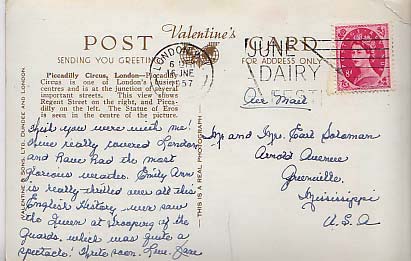 Valentine's
POST CARD
SENDING YOU GREETINGS
FOR ADDRESS ONLY
Piccadilly Circus, London—Piccadilly
Circus is one of London's busiest
centres and is at the junction of several
important streets. This view shows
Regent Street on the right, and Picca-
dilly on the left. The Statue of Eros
is seen in the centre of the picture.
VALENTINE & SONS, LTD., DUNDEE AND LONDON
THIS IS A REAL PHOTOGRAPH
LONDON
JUNE
1957
JUNE
DAIRY
FEST
Air Mail
Wish you were with me!
Have really covered London
and have had the most
glorious weather. Emily Ann
is really thrilled over all this
English History. We saw
the Queen at trooping of the
Guards, which was quite a
spectacle! Write soon. Love, Jane
Mr and Mrs Earl Solomon
Arnold Avenue
Greenville,
Mississippi
U.S.A